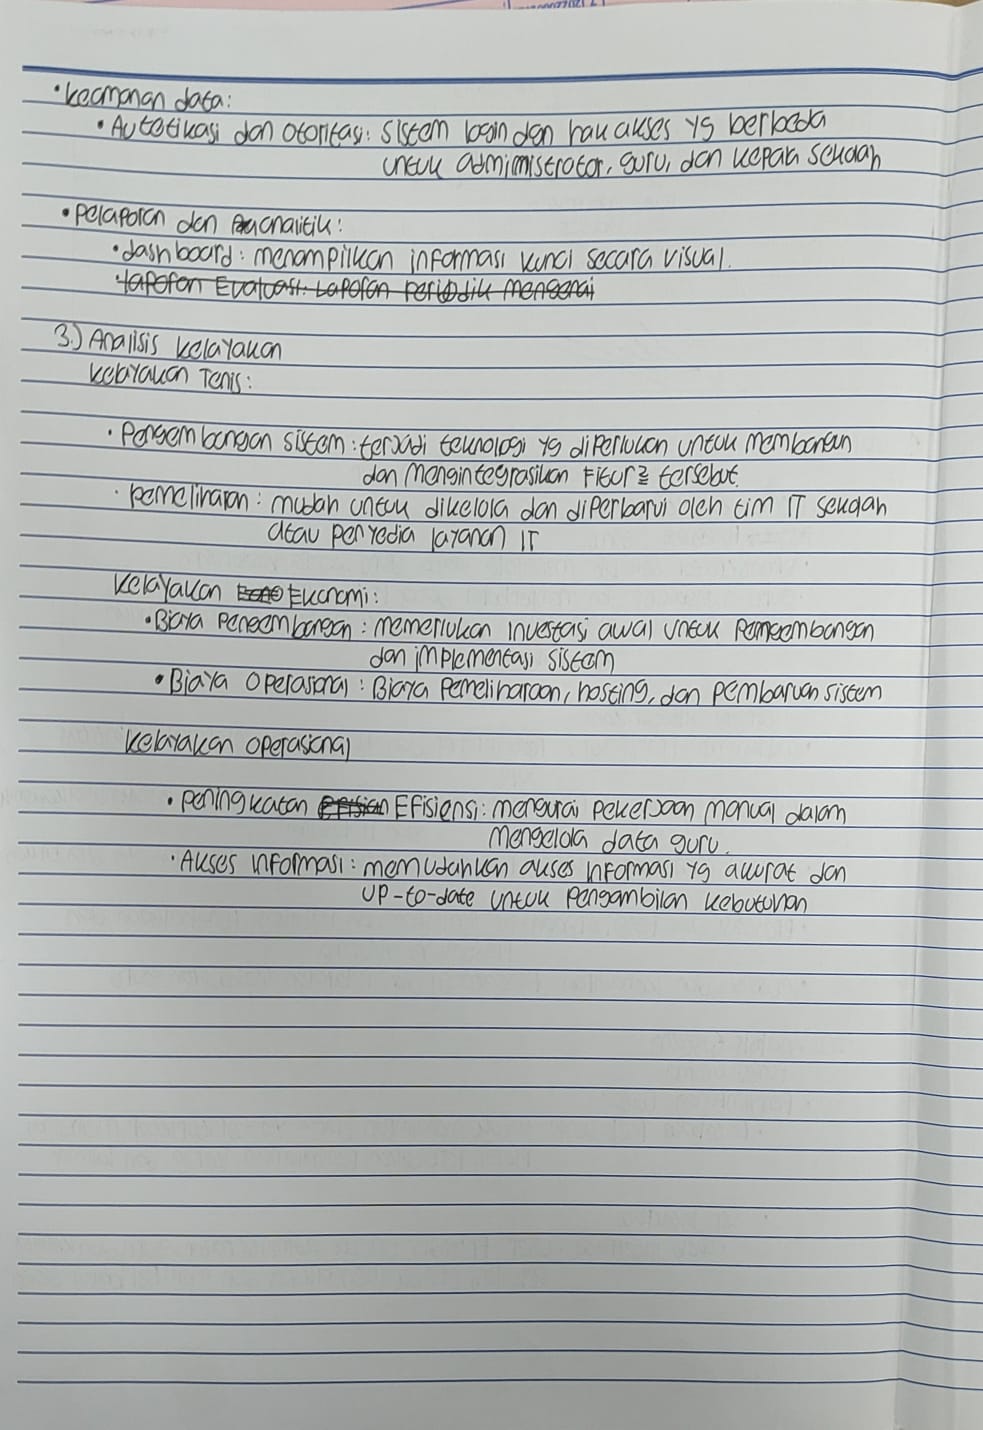 • keamanan data:
• Autetikasi dan otoritas: sistem login dan hak akses yg berbeda
untuk admimistrator, guru, dan kepala sekolah
• pelaporan dan analitik:
• dashboard: menampilkan informasi kunci secara visual.
laporan Evaluasi: Laporan periodik mengenai
3.) Analisis kelayakan
kelayakan Tenis:
• pengembangan sistem: terjadi teknologi yg diperlukan untuk membangun
dan mengintegrasikan Fitur2 tersebut.
• pemeliharaan: mudah untuk dikelola dan diperbarui oleh tim IT sekolah
atau penyedia layanan IT
kelayakan Ekonomi:
• Biaya pengembangan: memerlukan investasi awal untuk pengembangan
dan implementasi sistem
• Biaya operasional: Biaya pemeliharaan, hosting, dan pembaruan sistem
kelayakan operasional
• peningkatan Efisiensi: mengurai pekerjaan manual dalam
mengelola data guru.
• Akses informasi: memudahkan akses informasi yg akurat dan
up-to-date untuk pengambilan kebutuhan